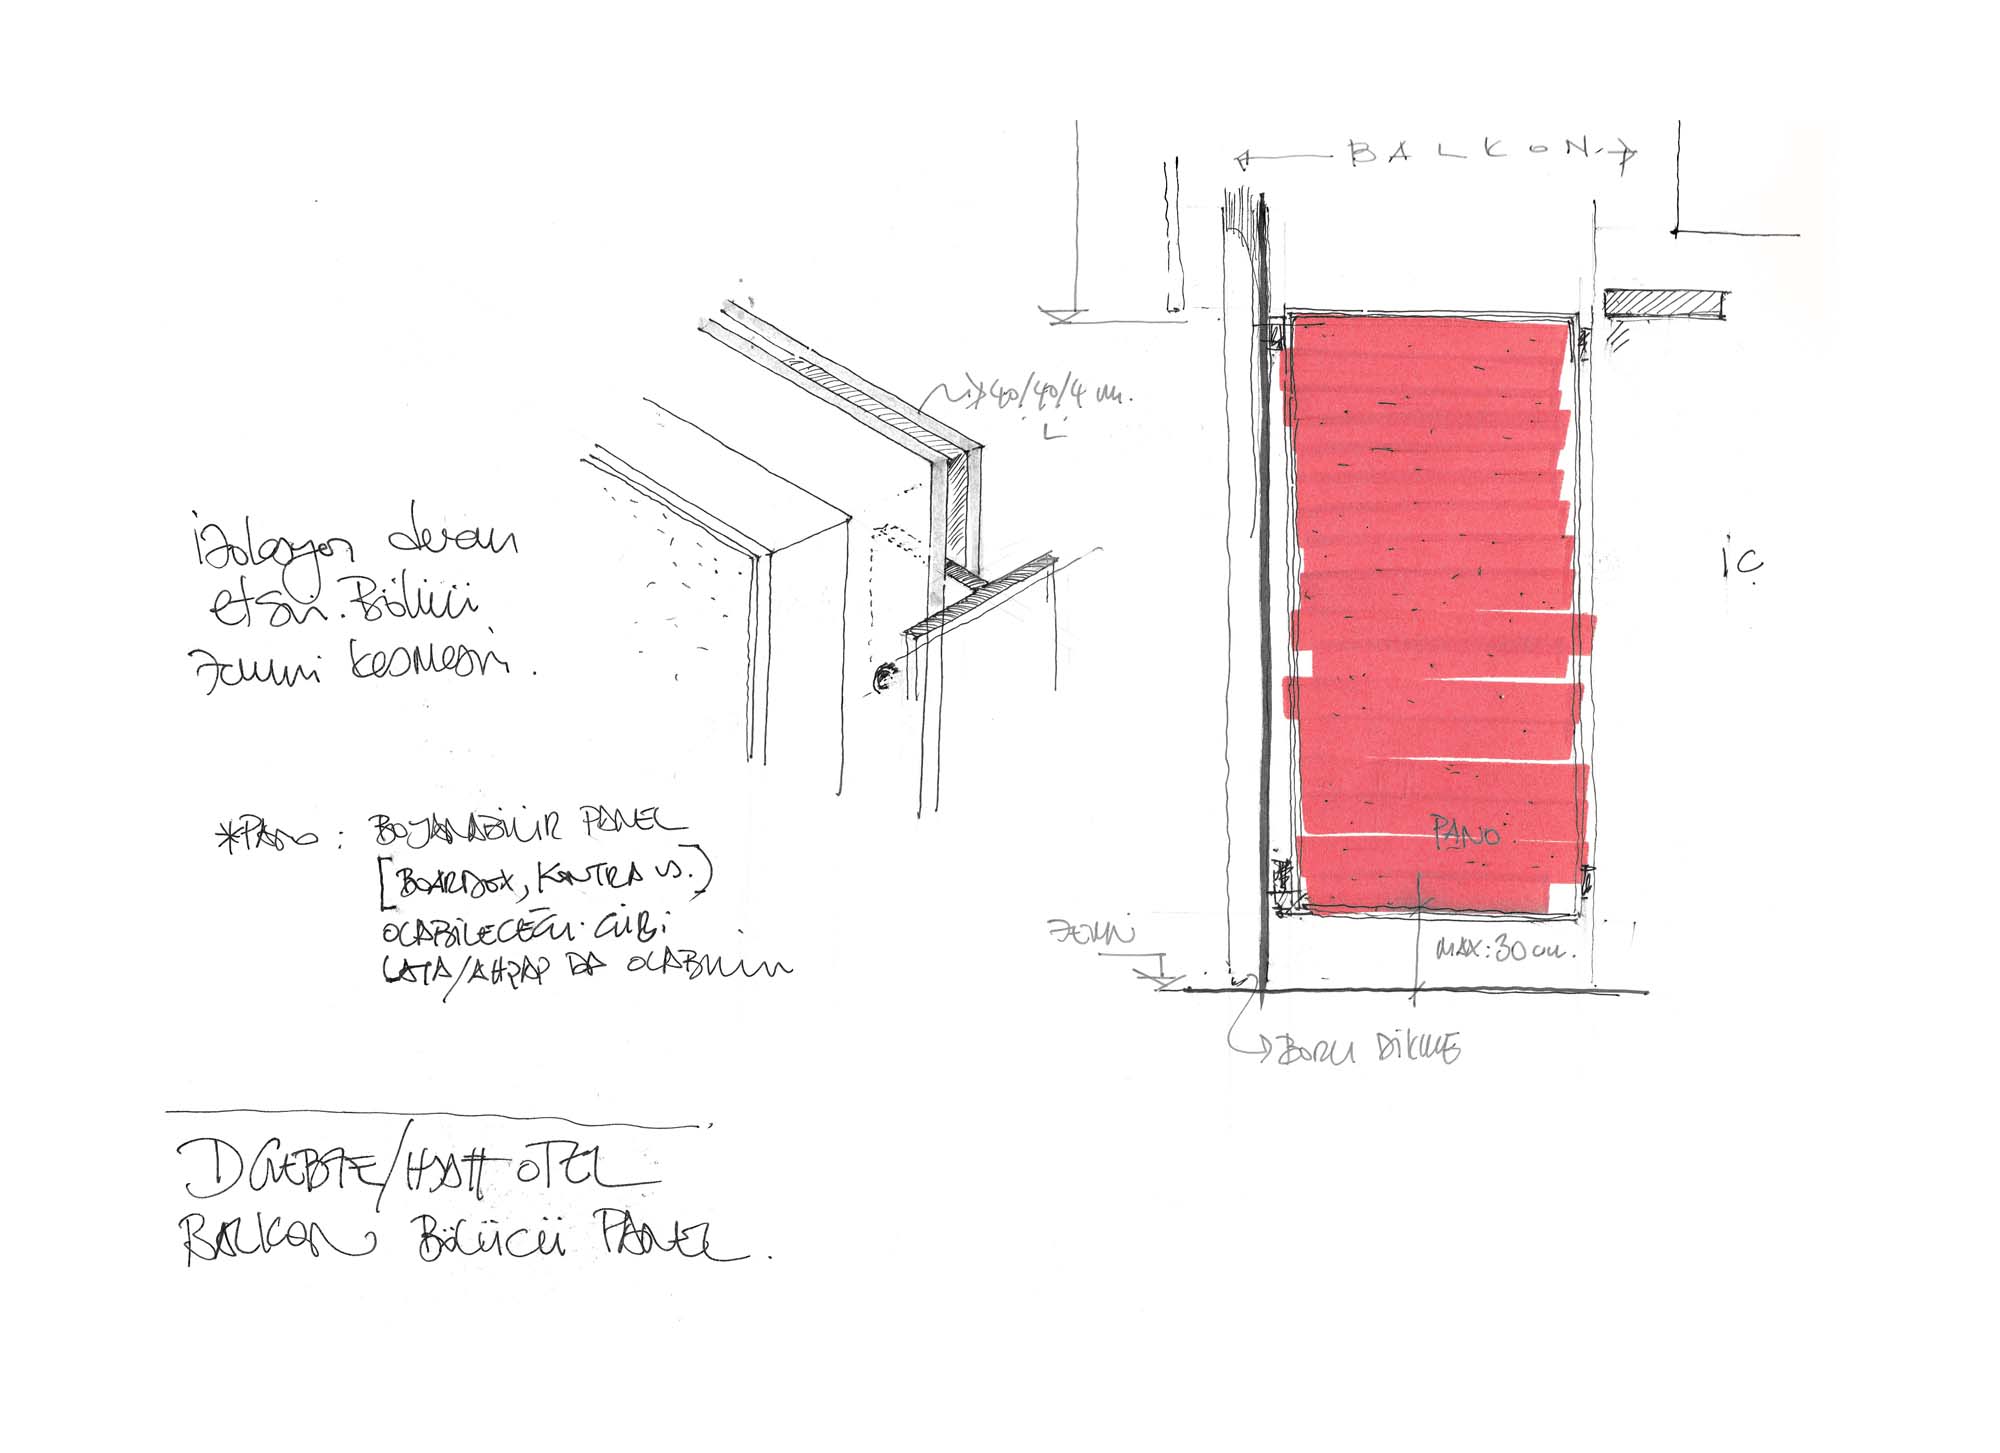 BALKON
40/40/4 cm.
L
izolasyon devam
etsin. Bölücü
zemini kesmesin.
İÇ
*PANO : BOYANABİLİR PANEL
[BOARDEX, KONTRA VS.)
OLABİLECEĞİ GİBİ
LATA/AHŞAP DA OLABİLİR
PANO
ZEMİN
MAX: 30 cm.
BORU DİKME
D GEBZE/HYATT OTEL
BALKON BÖLÜCÜ PANEL.